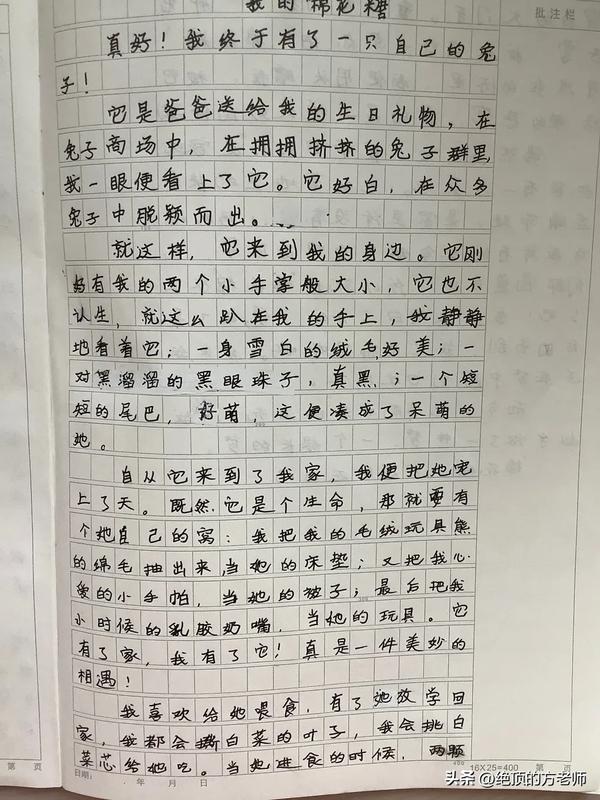 我的棉花糖
批注栏
真好！我终于有了一只自己的兔
子！
它是爸爸送给我的生日礼物，在
兔子商场中，在拥拥挤挤的兔子群里，
我一眼便看上了它。它好白，在众多
兔子中脱颖而出。
就这样，它来到我的身边。它刚
好有我的两个小手掌般大小，它也不
认生，就这么趴在我的手上，我静静
地看着它；一身雪白的绒毛好美；一
对黑溜溜的黑眼珠子，真黑；一个短
短的尾巴，好萌，这便凑成了呆萌的
她。
自从它来到了我家，我便把她宠
上了天。既然它是个生命，那就要有
个她自己的窝：我把我的毛绒玩具熊
的绵毛抽出来，当她的床垫；又把我心
爱的小手帕，当她的被子；最后把我
小时候的乳胶奶嘴，当她的玩具。它
有了家，我有了它！真是一件美妙的
相遇！
我喜欢给她喂食，有了她放学回
家，我都会撕白菜的叶子，我会挑白
菜芯给她吃。当她进食的时候，两颗
第 页
日期： 年 月 日
400
16X25=400 第 页
头条 @绝顶的方老师